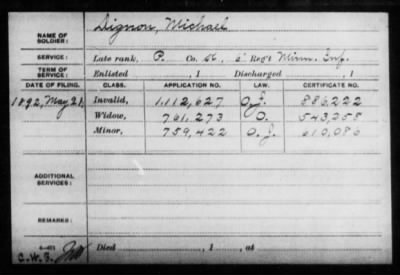 NAME OF SOLDIER: Dignon, Michael
SERVICE: Late rank, P. Co. , 6" Reg't Minn. Inf.
TERM OF SERVICE: Enlisted , 1 Discharged , 1
DATE OF FILING. CLASS. APPLICATION NO. LAW. CERTIFICATE NO.
1892, May 21. Invalid, 1,112,627 O.J. 886,222
Widow, 761,273 O. 543,258
Minor, 759,422 O.J. 610,086
ADDITIONAL SERVICES:
REMARKS:
C.W.B. Died , 1 , at